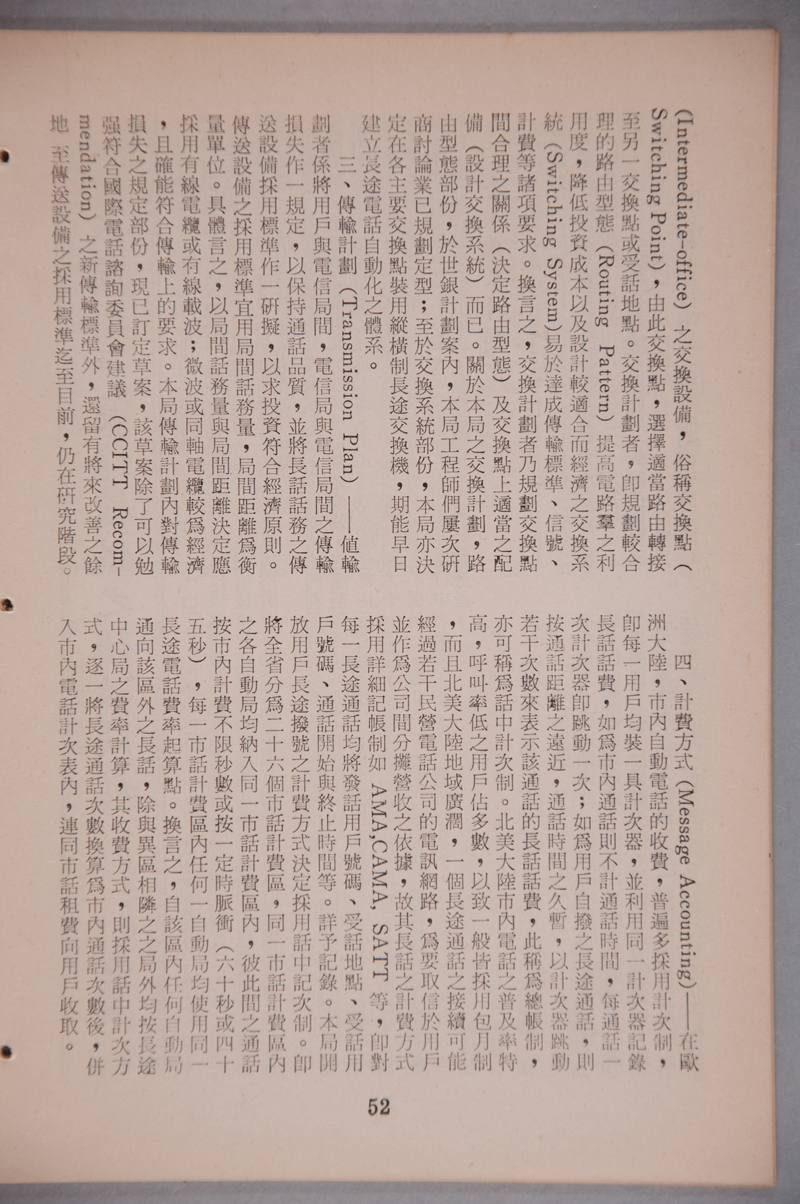 (Intermediate-office) 之交換設備，俗稱交換點（
Switching Point)，由此交換點，選擇適當路由轉接
至另一交換點或受話地點。交換計劃者，卽規劃較合
理的路由型態（Routing Pattern）提高電路羣之利
用度，降低投資成本以及設計較適合而經濟之交換系
統（Switching System)易於達成傳輸標準、信號、
計費等諸項要求。換言之，交換計劃者乃規劃交換點
間合理之關係（決定路由型態）及交換點上適當之配
備（設計交換系統）而已。關於本局之交換計劃，路
由型態部份，於世銀計劃案內，本局工程師們屢次研
商討論業已規劃定型；至於交換系統部份，本局亦決
定在各主要交換點裝用縱橫制長途交換機，期能早日
建立長途電話自動化之體系。
三、傳輸計劃（Transmission Plan）——値輸
劃者係將用戶與電信局間，電信局與電信局間之傳輸
損失作一規定，以保持通話品質，並將長話話務之傳
送設備採用標準作一硏擬，以求投資符合經濟原則。
傳送設備之採用標準宜用局間話務量，局間距離爲衡
量單位。具體言之，以局間話務量與局間距離決定應
採用有線電纜或有線載波；微波或同軸電纜較爲經濟
，且確能符合傳輸上的要求。本局傳輸計劃內對傳輸
損失之規定部份，現已訂定草案，該草案除了可以勉
强符合國際電話諮詢委員會建議（CCITT Recom-
mendation）之新傳輸標準外，還留有將來改善之餘
地 至傳送設備之採用標準迄至目前，仍在研究階段。
四、計費方式 (Message Accounting)——在歐
洲大陸，市內自動電話的收費，普遍多採用計次制，
卽每一用戶均裝一具計次器，並利用同一計次器記錄
長話話費，如爲市內通話則不計通話時間，每通話一
次計次器卽跳動一次；如爲用戶自撥之長途通話，則
按通話距離之遠近，通話時間之久暫，以計次器跳動
若干次數來表示該通話的長話話費，此稱爲總帳制，
亦可稱爲話中計次制。北美大陸市內電話之普及率特
高，呼叫率低之用戶佔多數，以致一般皆採用包月制
，而且北美大陸地域廣濶，一個長途通話之接續可能
經過若干民營電話公司的電訊網路，爲要取信於用戶
並作爲公司間分攤營收之依據，故其長話之計費方式
採用詳細記帳制如 AMA,CAMA, SATT 等，卽對
每一長途通話均將發話用戶號碼、受話地點、受話用
戶號碼、通話開始與終止時間等。詳予記錄。本局開
放用戶長途撥號之計費方式決定採用話中記次制。卽
將全省分爲二十六個市話計費區，同一市話計費區內
之各自動局均納入同一市話計費區內，彼此間之通話
按市內計費不限秒數或按一定時脈衝（六十秒或四十
五秒），每一市話計費區內任何一自動局均使用同一
長途電話費率起算點。換言之，自該區內任何自動局
通向該區外之長話，除與異區相隣之之局外均按長途
中心局之費率計算，其收費方式，則採用話中計次方
式，逐一將長途通話次數換算爲市內通話次數後，併
入市內電話計次表內，連同市話租費向用戶收取。
52